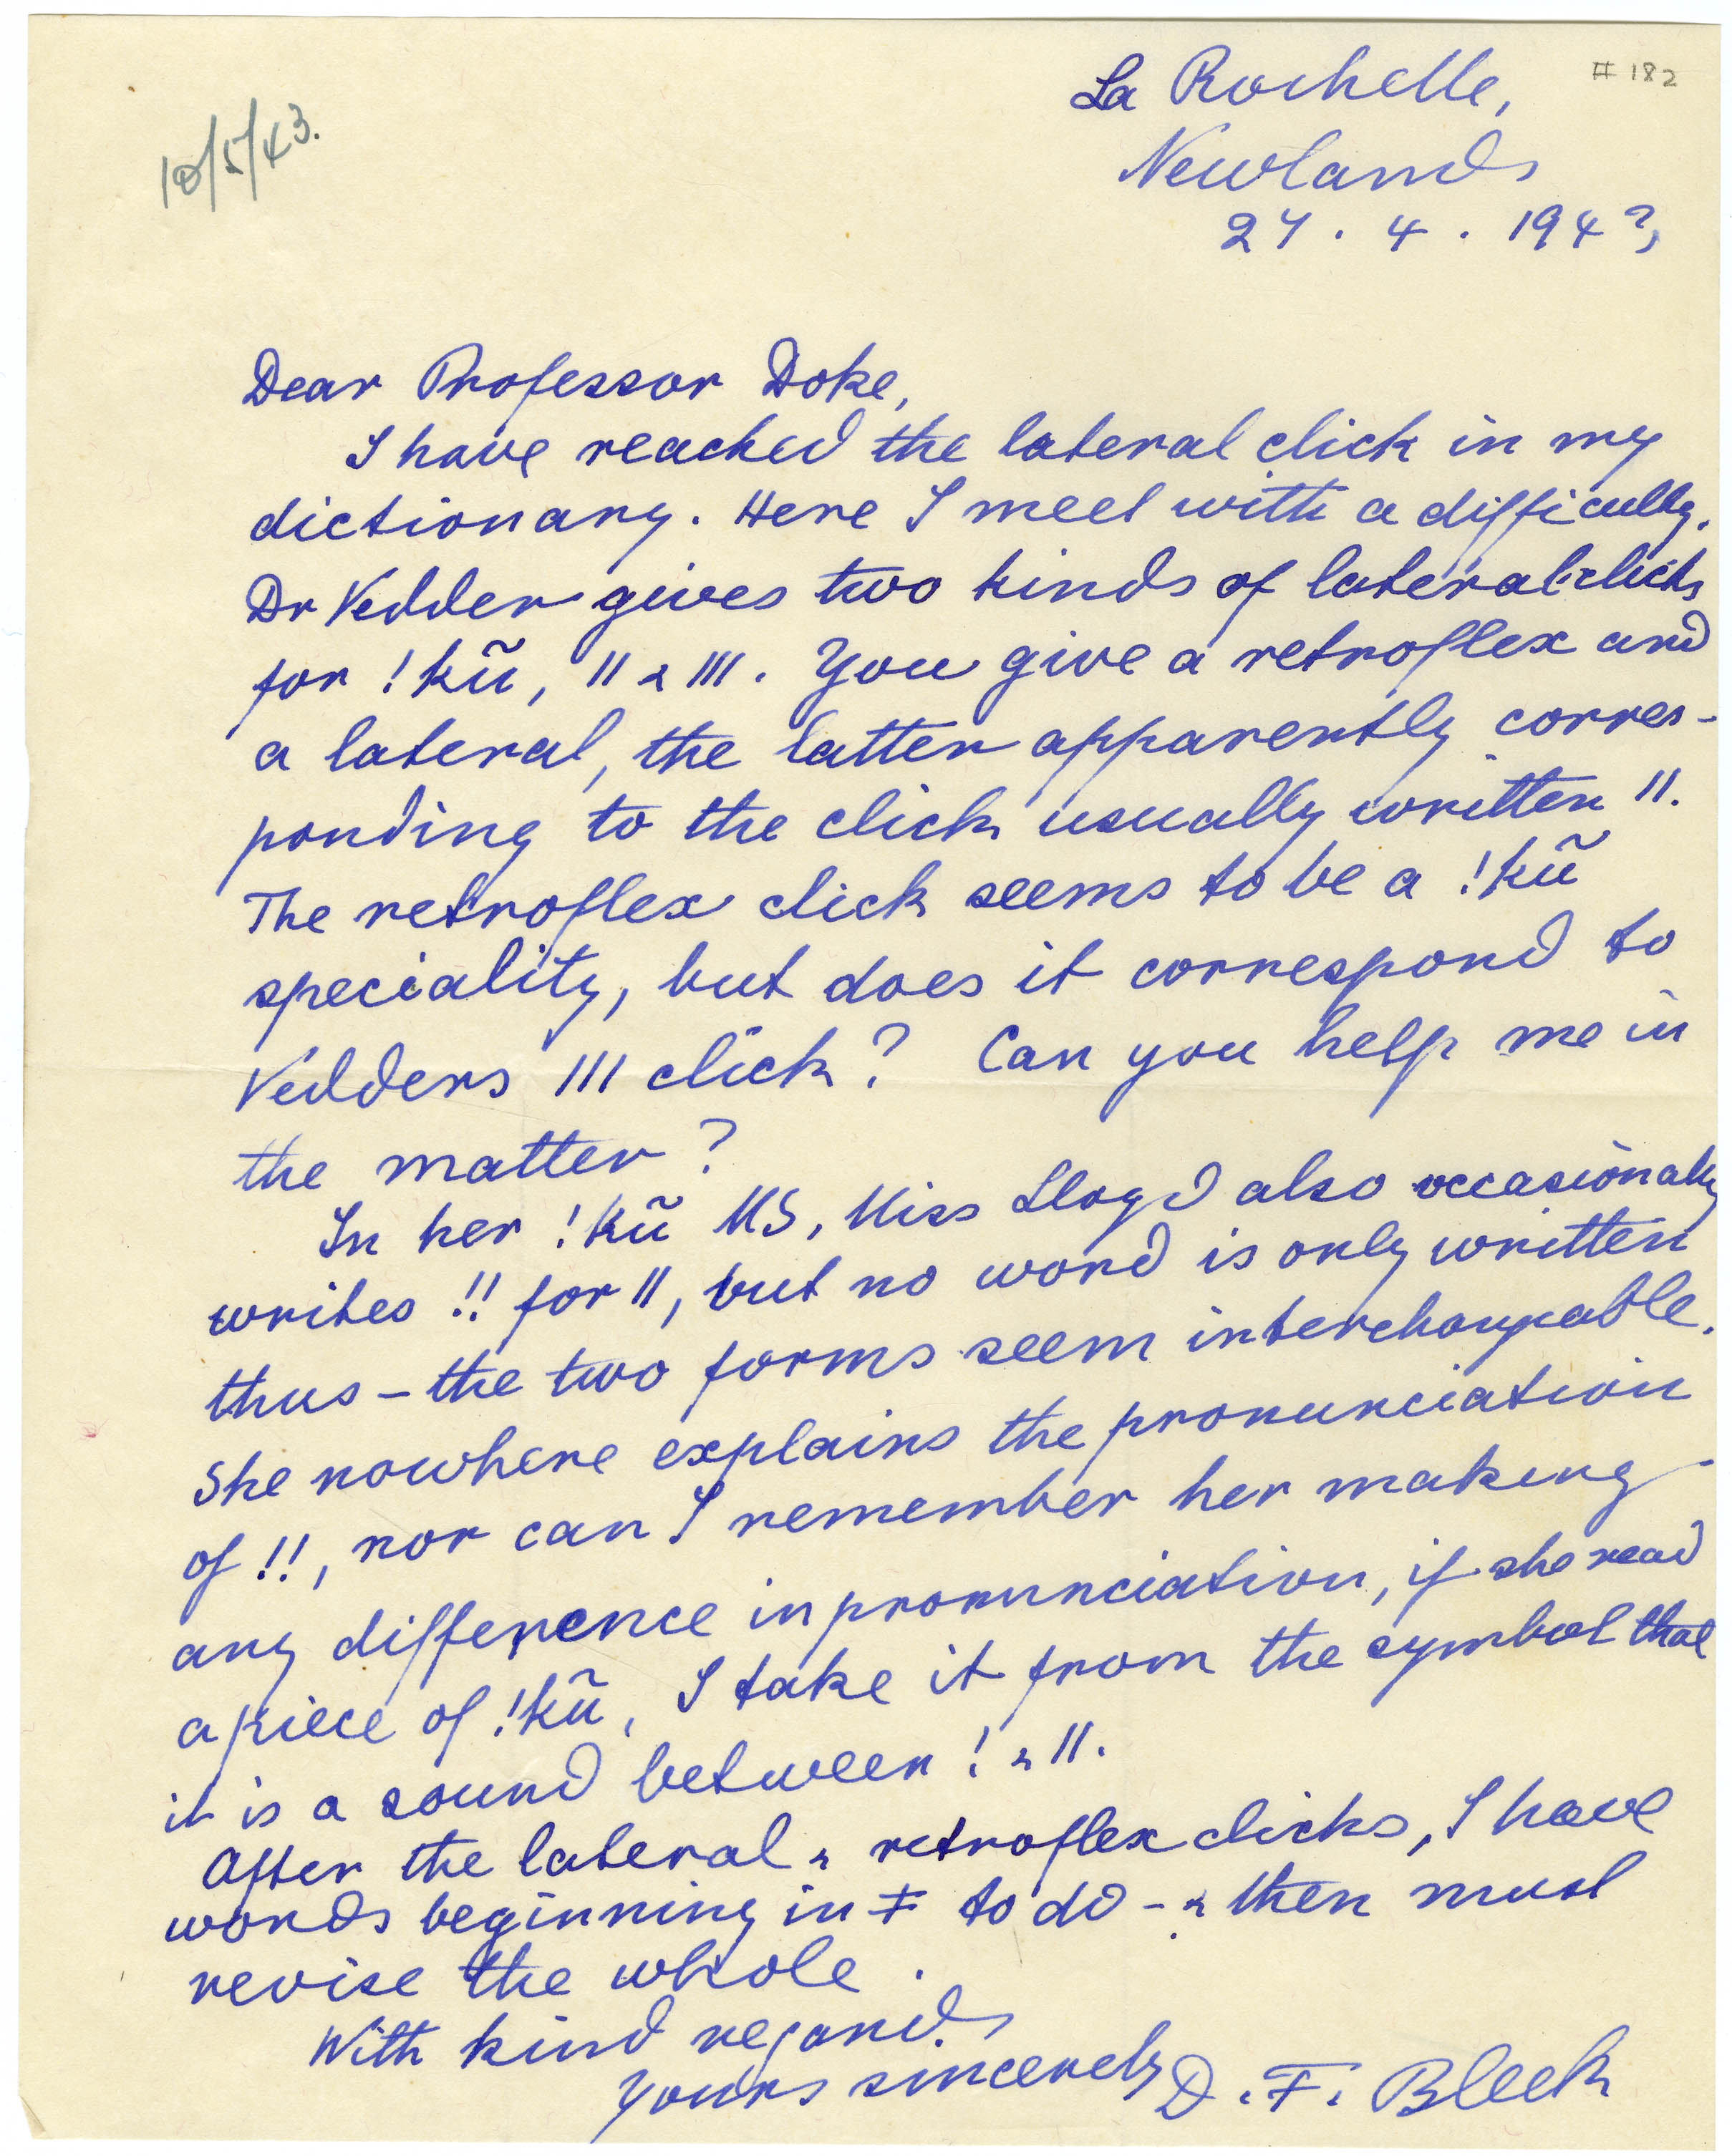 # 182
La Rochelle,
10/5/43.
Newlands
27 . 4 . 1943
Dear Professor Doke,
I have reached the lateral click in my
dictionary. Here I meet with a difficulty.
Dr Vedder gives two kinds of lateral clicks
for !kũ, || & |||. You give a retroflex and
a lateral, the latter apparently corres-
ponding to the click usually written ||.
The retroflex click seems to be a !kũ
speciality, but does it correspond to
Vedders ||| click? Can you help me in
the matter?
In her !kũ MS, Miss Lloyd also occasionally
writes !! for ||, but no word is only written
thus – the two forms seem interchangeable.
She nowhere explains the pronunciation
of !!, nor can I remember her making
any difference in pronunciation, if she read
a piece of !kũ, I take it from the symbol that
it is a sound between ! & ||.
After the lateral & retroflex clicks, I have
words beginning in ǂ to do – & then must
revise the whole.
With kind regards
Yours sincerely D. F. Bleek